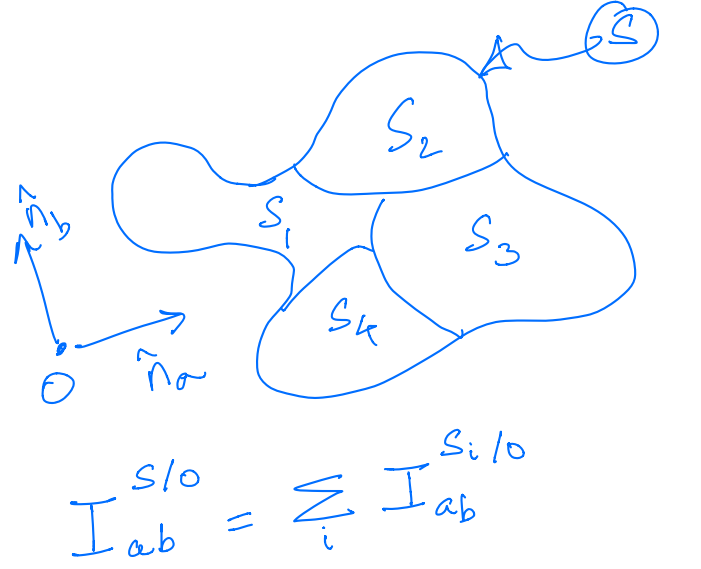 S
S₂
n̂_b
S₁
S₃
S₄
O
n̂_a
I_{ab}^{S/O} = Σ_i I_{ab}^{S_i/O}